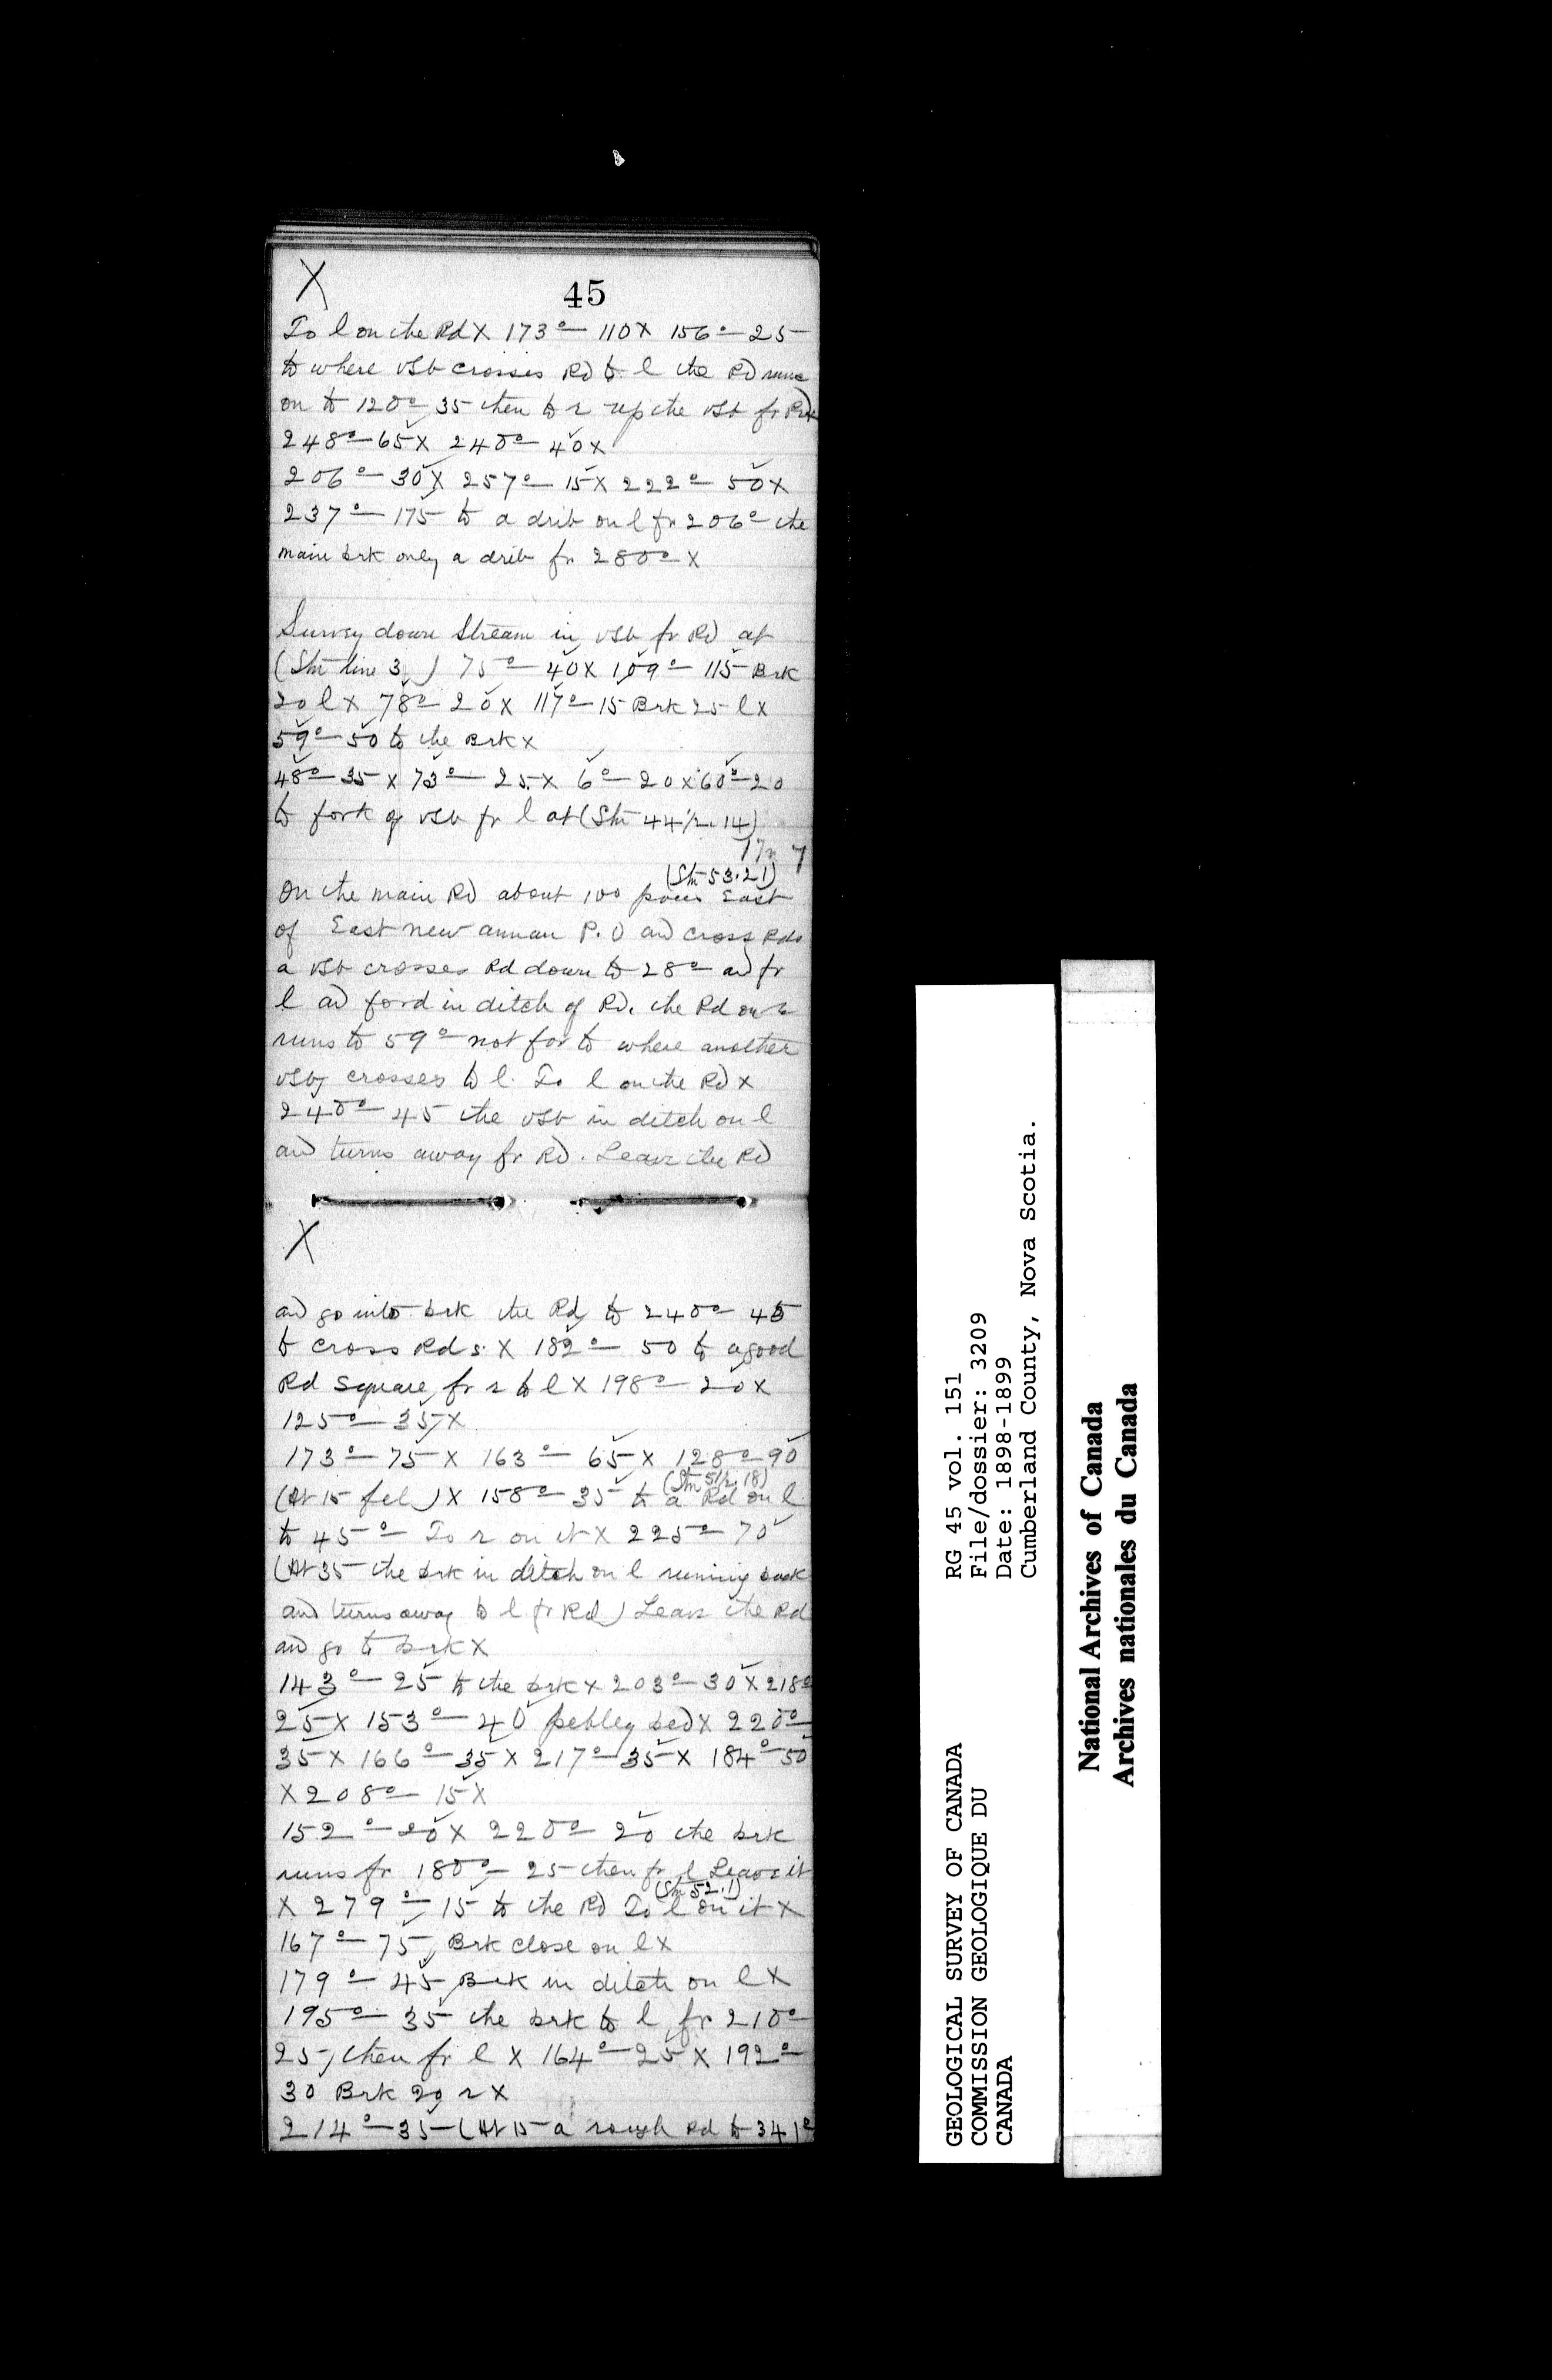 X
45
To l on the Rd X 173° — 110 X 156° — 25
to where vSb crosses Rd to l the Rd runs
on to 120° 35 then to r up the vSb fr Rd X
248° — 65 X 240° — 40 X
206° — 30 X 257° — 15 X 222° — 50 X
237° — 175 to a drib on l fr 206° the
main brk only a drib fr 280° X
Survey down Stream in vSb fr Rd at
(Stn line 3) 75° — 40 X 109° — 115 Brk
20 l X 78° 20 X 117° — 15 Brk 25 l X
59° — 50 to the Brk X
48° — 35 X 73° — 25 X 6° — 20 X 60° — 20
to fork of vSb fr l at (Stn 44 1/2. 14)
(Stn 53.21)
On the main Rd about 100 paces East
of East new annan P.O and cross Rds
a vSb crosses Rd down to 28° and fr
l and ford in ditch of Rd. the Rd on
runs to 59° not far to where another
vSb crosses to l. To l on the Rd X
240° — 45 the vSb in ditch on l
and turns away fr Rd. Leave the Rd
X
and go into brk the Rd to 240° 45
to cross Rds. X 182° — 50 to a good
Rd Square fr r to l X 198° — 20 X
125° — 35 X
173° — 75 X 163° — 65 X 128° 90
(Stn 51 1/2. 18)
(At 15 fel) X 158° — 35 to a Rd on l
to 45° To r on it X 225° 70
(At 35 the brk in ditch on l running back
and turns away to l fr Rd) Leave the Rd
and go to brk X
143° — 25 to the brk X 203° — 30 X 218°
25 X 153° — 40 pebbley bed X 220°
35 X 166° — 35 X 217° — 35 X 184° 50
X 208° — 15 X
152° — 20 X 220° 20 the brk
runs fr 180° — 25 then fr l Leave it
(Stn 52.1)
X 279° — 15 to the Rd To l on it X
167° — 75 Brk close on l X
179° — 45 Brk in ditch on l X
195° — 35 the brk to l fr 210°
25, then fr l X 164° — 25 X 192°
30 Brk 20 r X
214° — 35 (At 15 a rough Rd to 341°
GEOLOGICAL SURVEY OF CANADA
COMMISSION GEOLOGIQUE DU
CANADA
RG 45 vol. 151
File/dossier: 3209
Date: 1898-1899
Cumberland County, Nova Scotia.
National Archives of Canada
Archives nationales du Canada